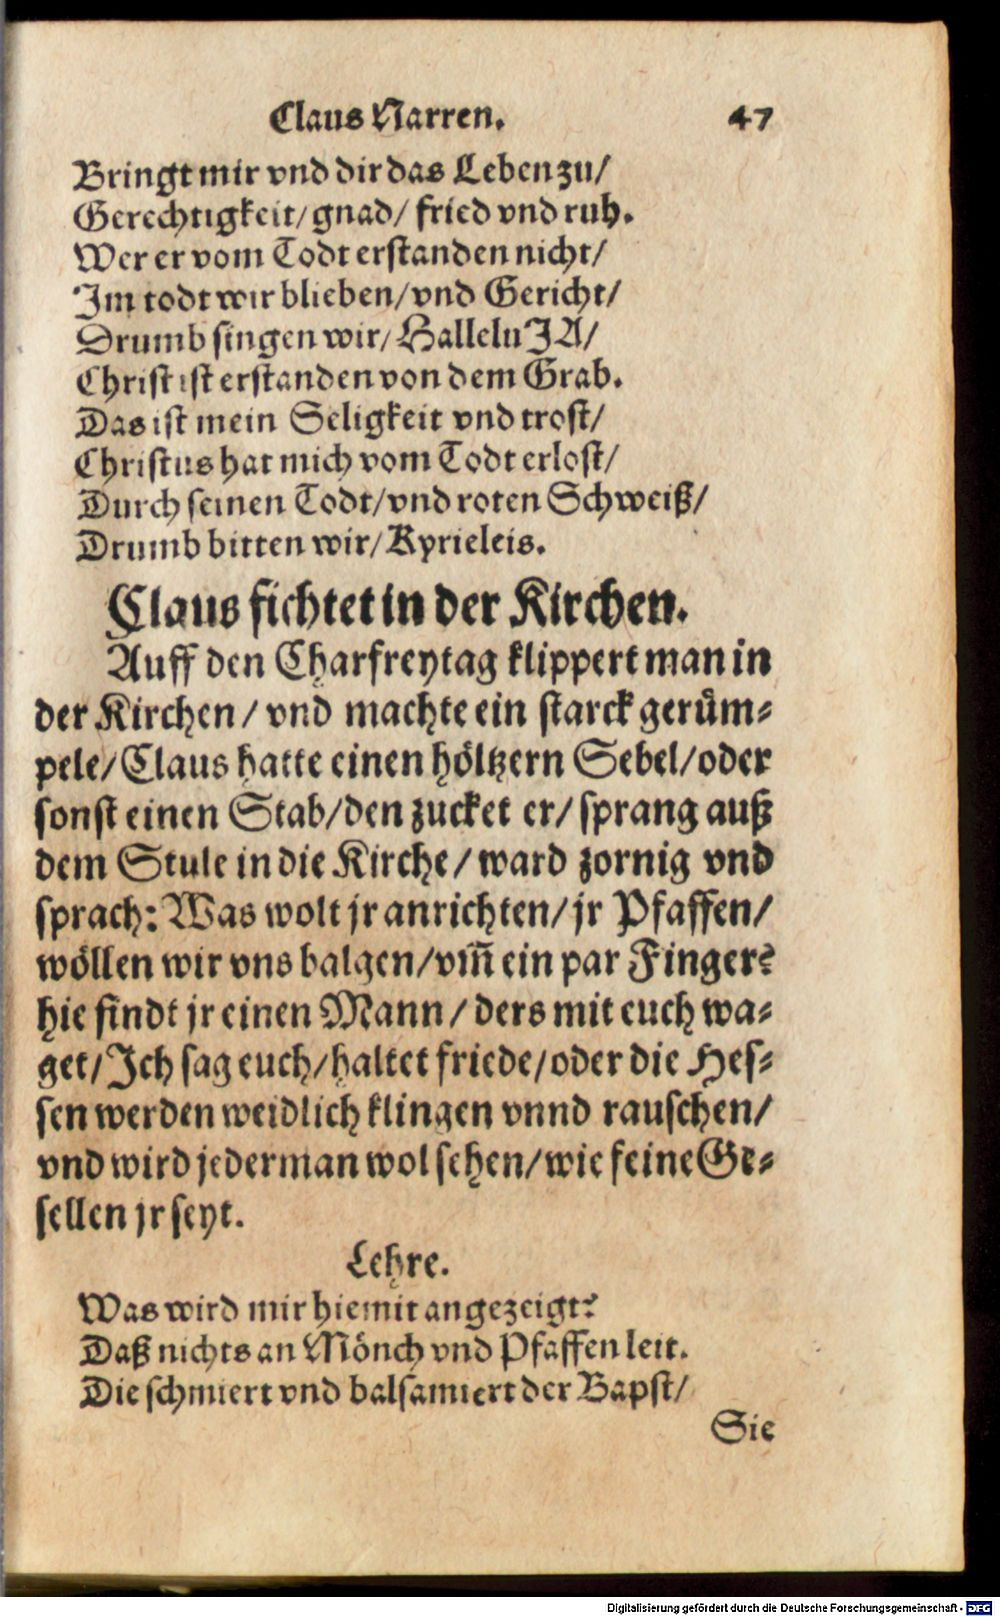 Claus Narren. 47
Bringt mir vnd dir das Leben zu/
Gerechtigkeit/gnad/ fried vnd ruh.
Wer er vom Todt erstanden nicht/
Im todt wir blieben/vnd Gericht/
Drumb singen wir/ HalleluJA/
Christ ist erstanden von dem Grab.
Das ist mein Seligkeit vnd trost/
Christus hat mich vom Todt erlost/
Durch seinen Todt/vnd roten Schweiß/
Drumb bitten wir/ Kyrieleis.
Claus fichtet in der Kirchen.
Auff den Charfreytag klippert man in
der Kirchen/ vnd machte ein starck gerům⸗
pele/Claus hatte einen höltzern Sebel/oder
sonst einen Stab/den zucket er/ sprang auß
dem Stule in die Kirche/ ward zornig vnd
sprach: Was wolt jr anrichten/jr Pfaffen/
wöllen wir vns balgen/vm̃ ein par Finger?
hie findt jr einen Mann/ ders mit euch wa⸗
get/Ich sag euch/haltet friede/oder die Hes⸗
sen werden weidlich klingen vnnd rauschen/
vnd wird jederman wol sehen/wie feine Ge⸗
sellen jr seyt.
Lehre.
Was wird mir hiemit angezeigt?
Daß nichts an Mönch vnd Pfaffen leit.
Die schmiert vnd balsamiert der Bapst/
Sie
Digitalisierung gefördert durch die Deutsche Forschungsgemeinschaft - DFG